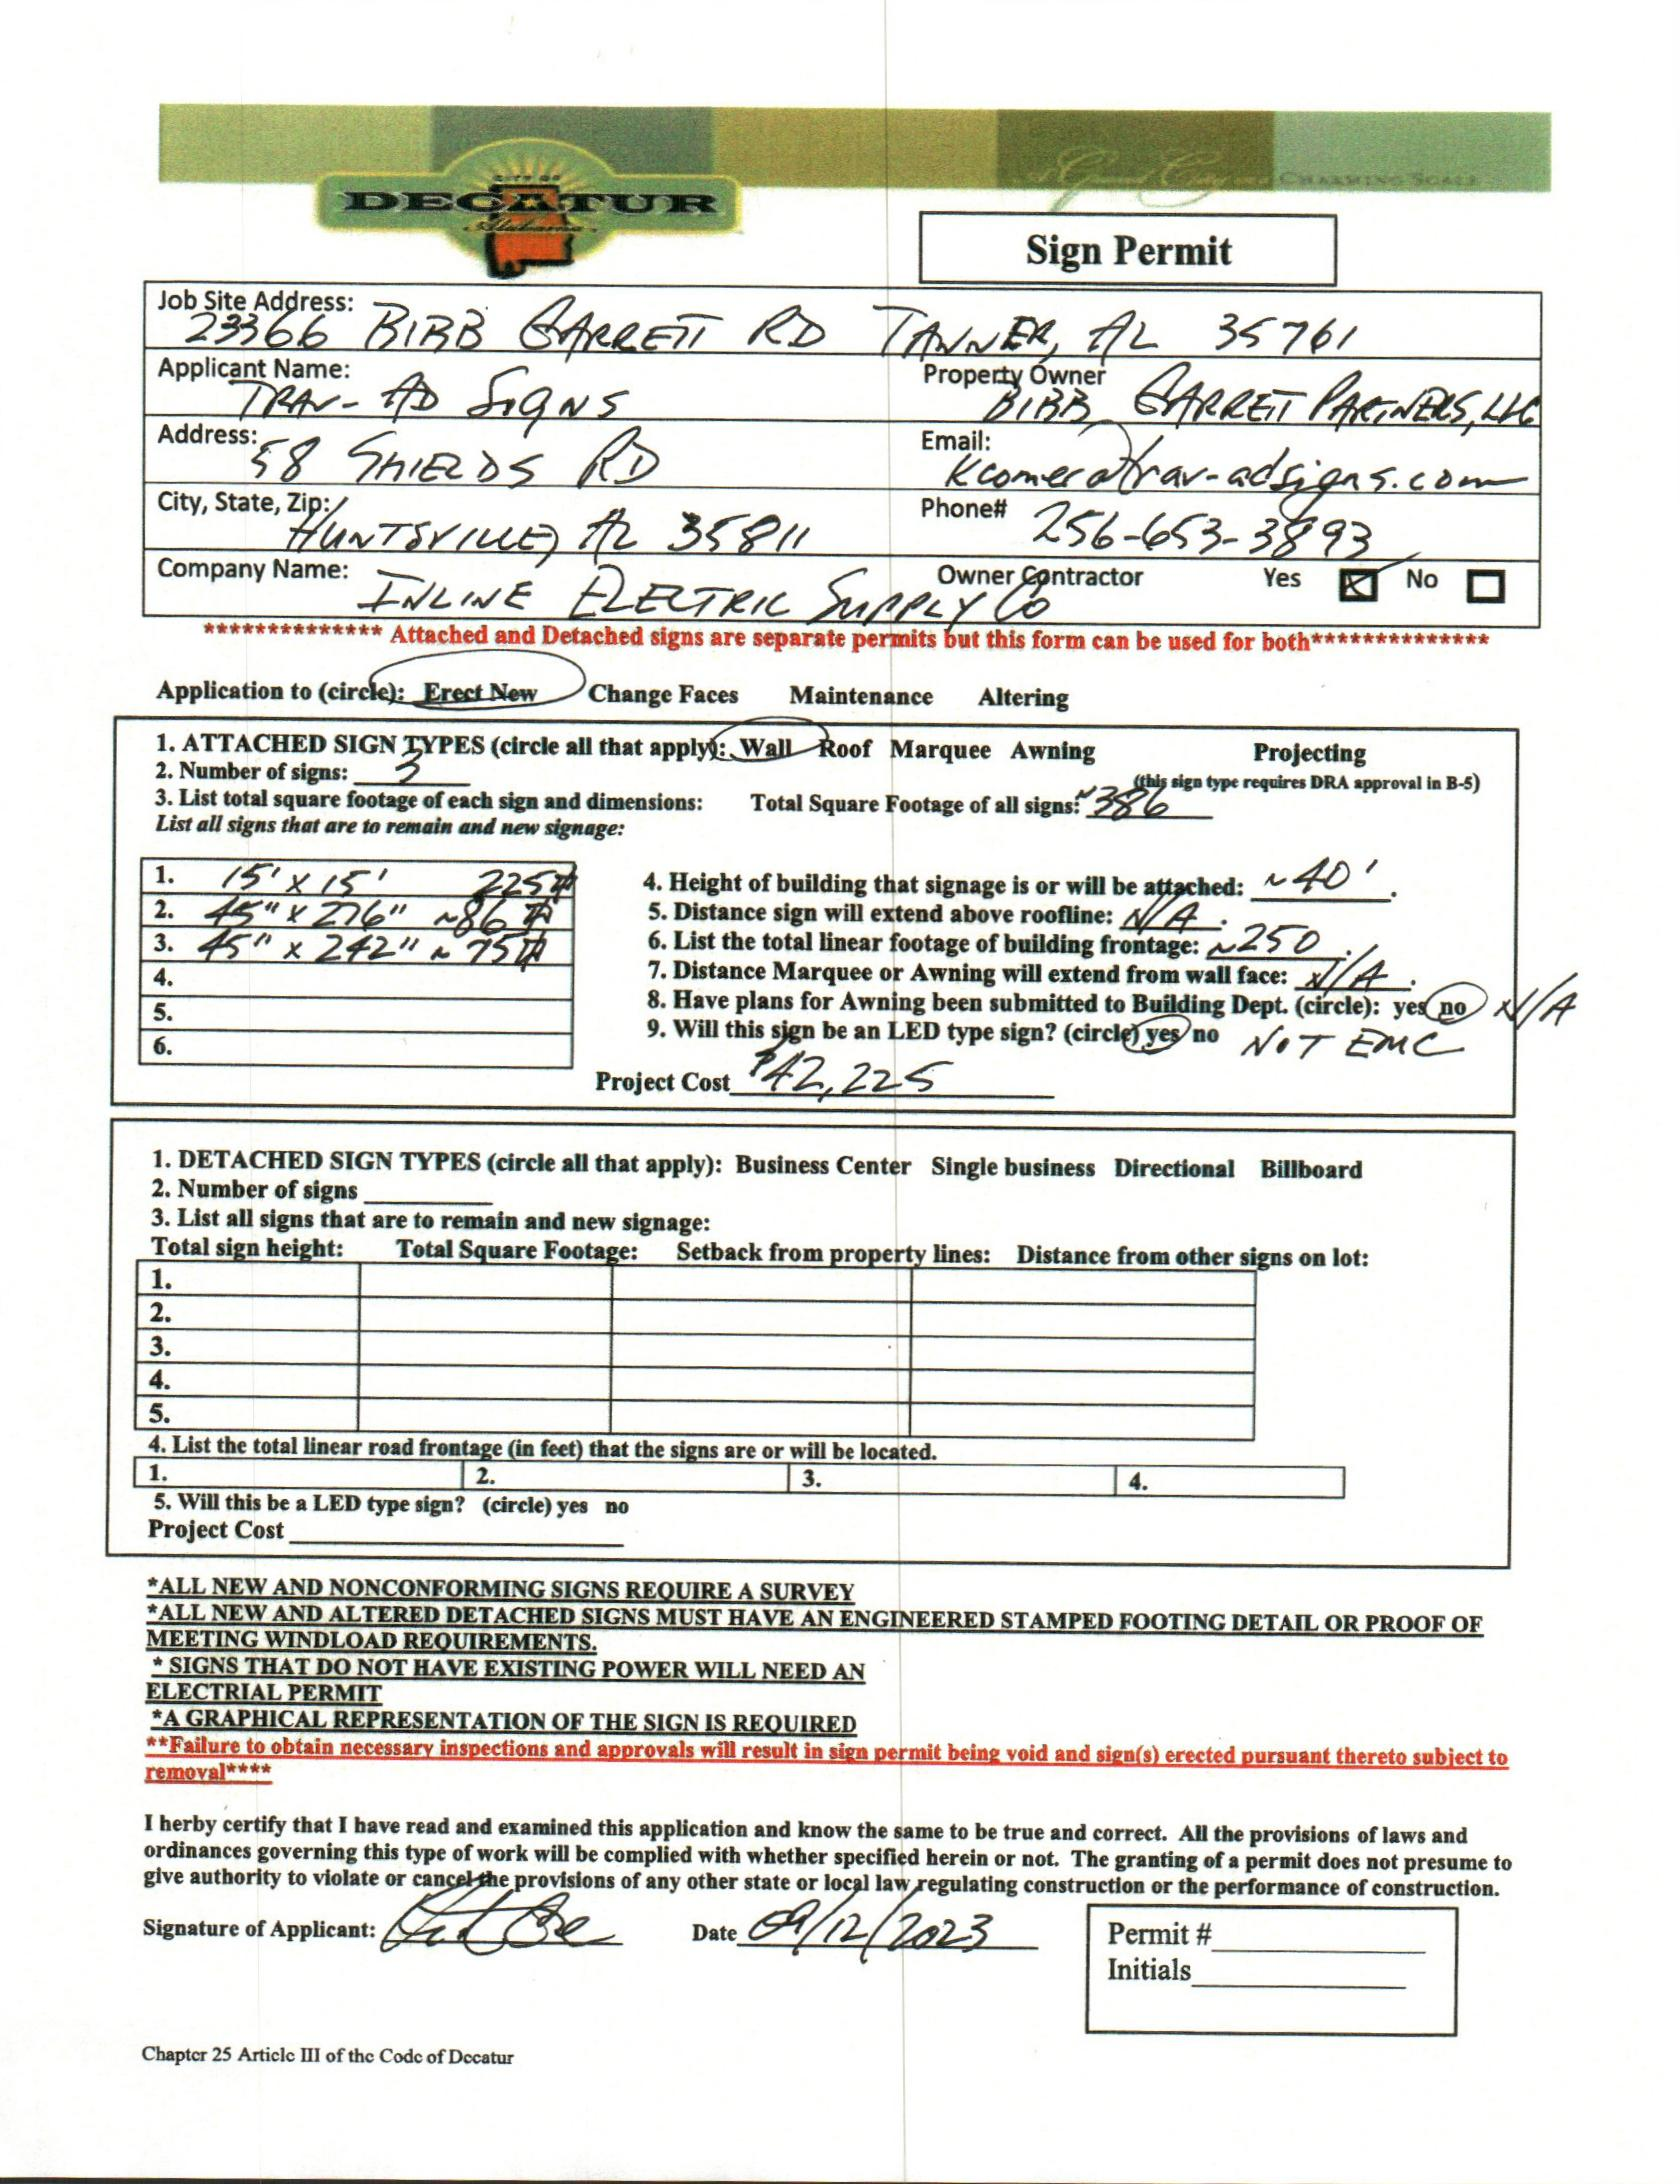 CITY OF
DECATUR
Alabama
A Grand City CHARMING SCALE
Sign Permit
Job Site Address: 23366 BIBB GARRETT RD TANNER, AL 35761
Applicant Name: TRAV-AD SIGNS Property Owner BIBB GARRETT PARTNERS, LLC
Address: 58 SHIELDS RD Email: kcomer@trav-adsigns.com
City, State, Zip: HUNTSVILLE, AL 35811 Phone# 256-653-3893
Company Name: INLINE ELECTRIC SUPPLY CO Owner Contractor Yes ☒ No ☐
************** Attached and Detached signs are separate permits but this form can be used for both**************
Application to (circle): Erect New Change Faces Maintenance Altering
1. ATTACHED SIGN TYPES (circle all that apply): Wall Roof Marquee Awning Projecting
2. Number of signs: 3 (this sign type requires DRA approval in B-5)
3. List total square footage of each sign and dimensions: Total Square Footage of all signs: ~386
List all signs that are to remain and new signage:
1. 15' x 15' 225#
2. 45" x 276" ~86#
3. 45" x 242" ~75#
4.
5.
6.
4. Height of building that signage is or will be attached: ~40'.
5. Distance sign will extend above roofline: N/A.
6. List the total linear footage of building frontage: ~250.
7. Distance Marquee or Awning will extend from wall face: N/A.
8. Have plans for Awning been submitted to Building Dept. (circle): yes no N/A
9. Will this sign be an LED type sign? (circle) yes no NOT EMC
Project Cost $42,225
1. DETACHED SIGN TYPES (circle all that apply): Business Center Single business Directional Billboard
2. Number of signs
3. List all signs that are to remain and new signage:
Total sign height: Total Square Footage: Setback from property lines: Distance from other signs on lot:
1.
2.
3.
4.
5.
4. List the total linear road frontage (in feet) that the signs are or will be located.
1. 2. 3. 4.
5. Will this be a LED type sign? (circle) yes no
Project Cost
*ALL NEW AND NONCONFORMING SIGNS REQUIRE A SURVEY
*ALL NEW AND ALTERED DETACHED SIGNS MUST HAVE AN ENGINEERED STAMPED FOOTING DETAIL OR PROOF OF
MEETING WINDLOAD REQUIREMENTS.
* SIGNS THAT DO NOT HAVE EXISTING POWER WILL NEED AN
ELECTRIAL PERMIT
*A GRAPHICAL REPRESENTATION OF THE SIGN IS REQUIRED
**Failure to obtain necessary inspections and approvals will result in sign permit being void and sign(s) erected pursuant thereto subject to
removal****
I herby certify that I have read and examined this application and know the same to be true and correct. All the provisions of laws and
ordinances governing this type of work will be complied with whether specified herein or not. The granting of a permit does not presume to
give authority to violate or cancel the provisions of any other state or local law regulating construction or the performance of construction.
Signature of Applicant: Date 09/12/2023
Permit #
Initials
Chapter 25 Article III of the Code of Decatur